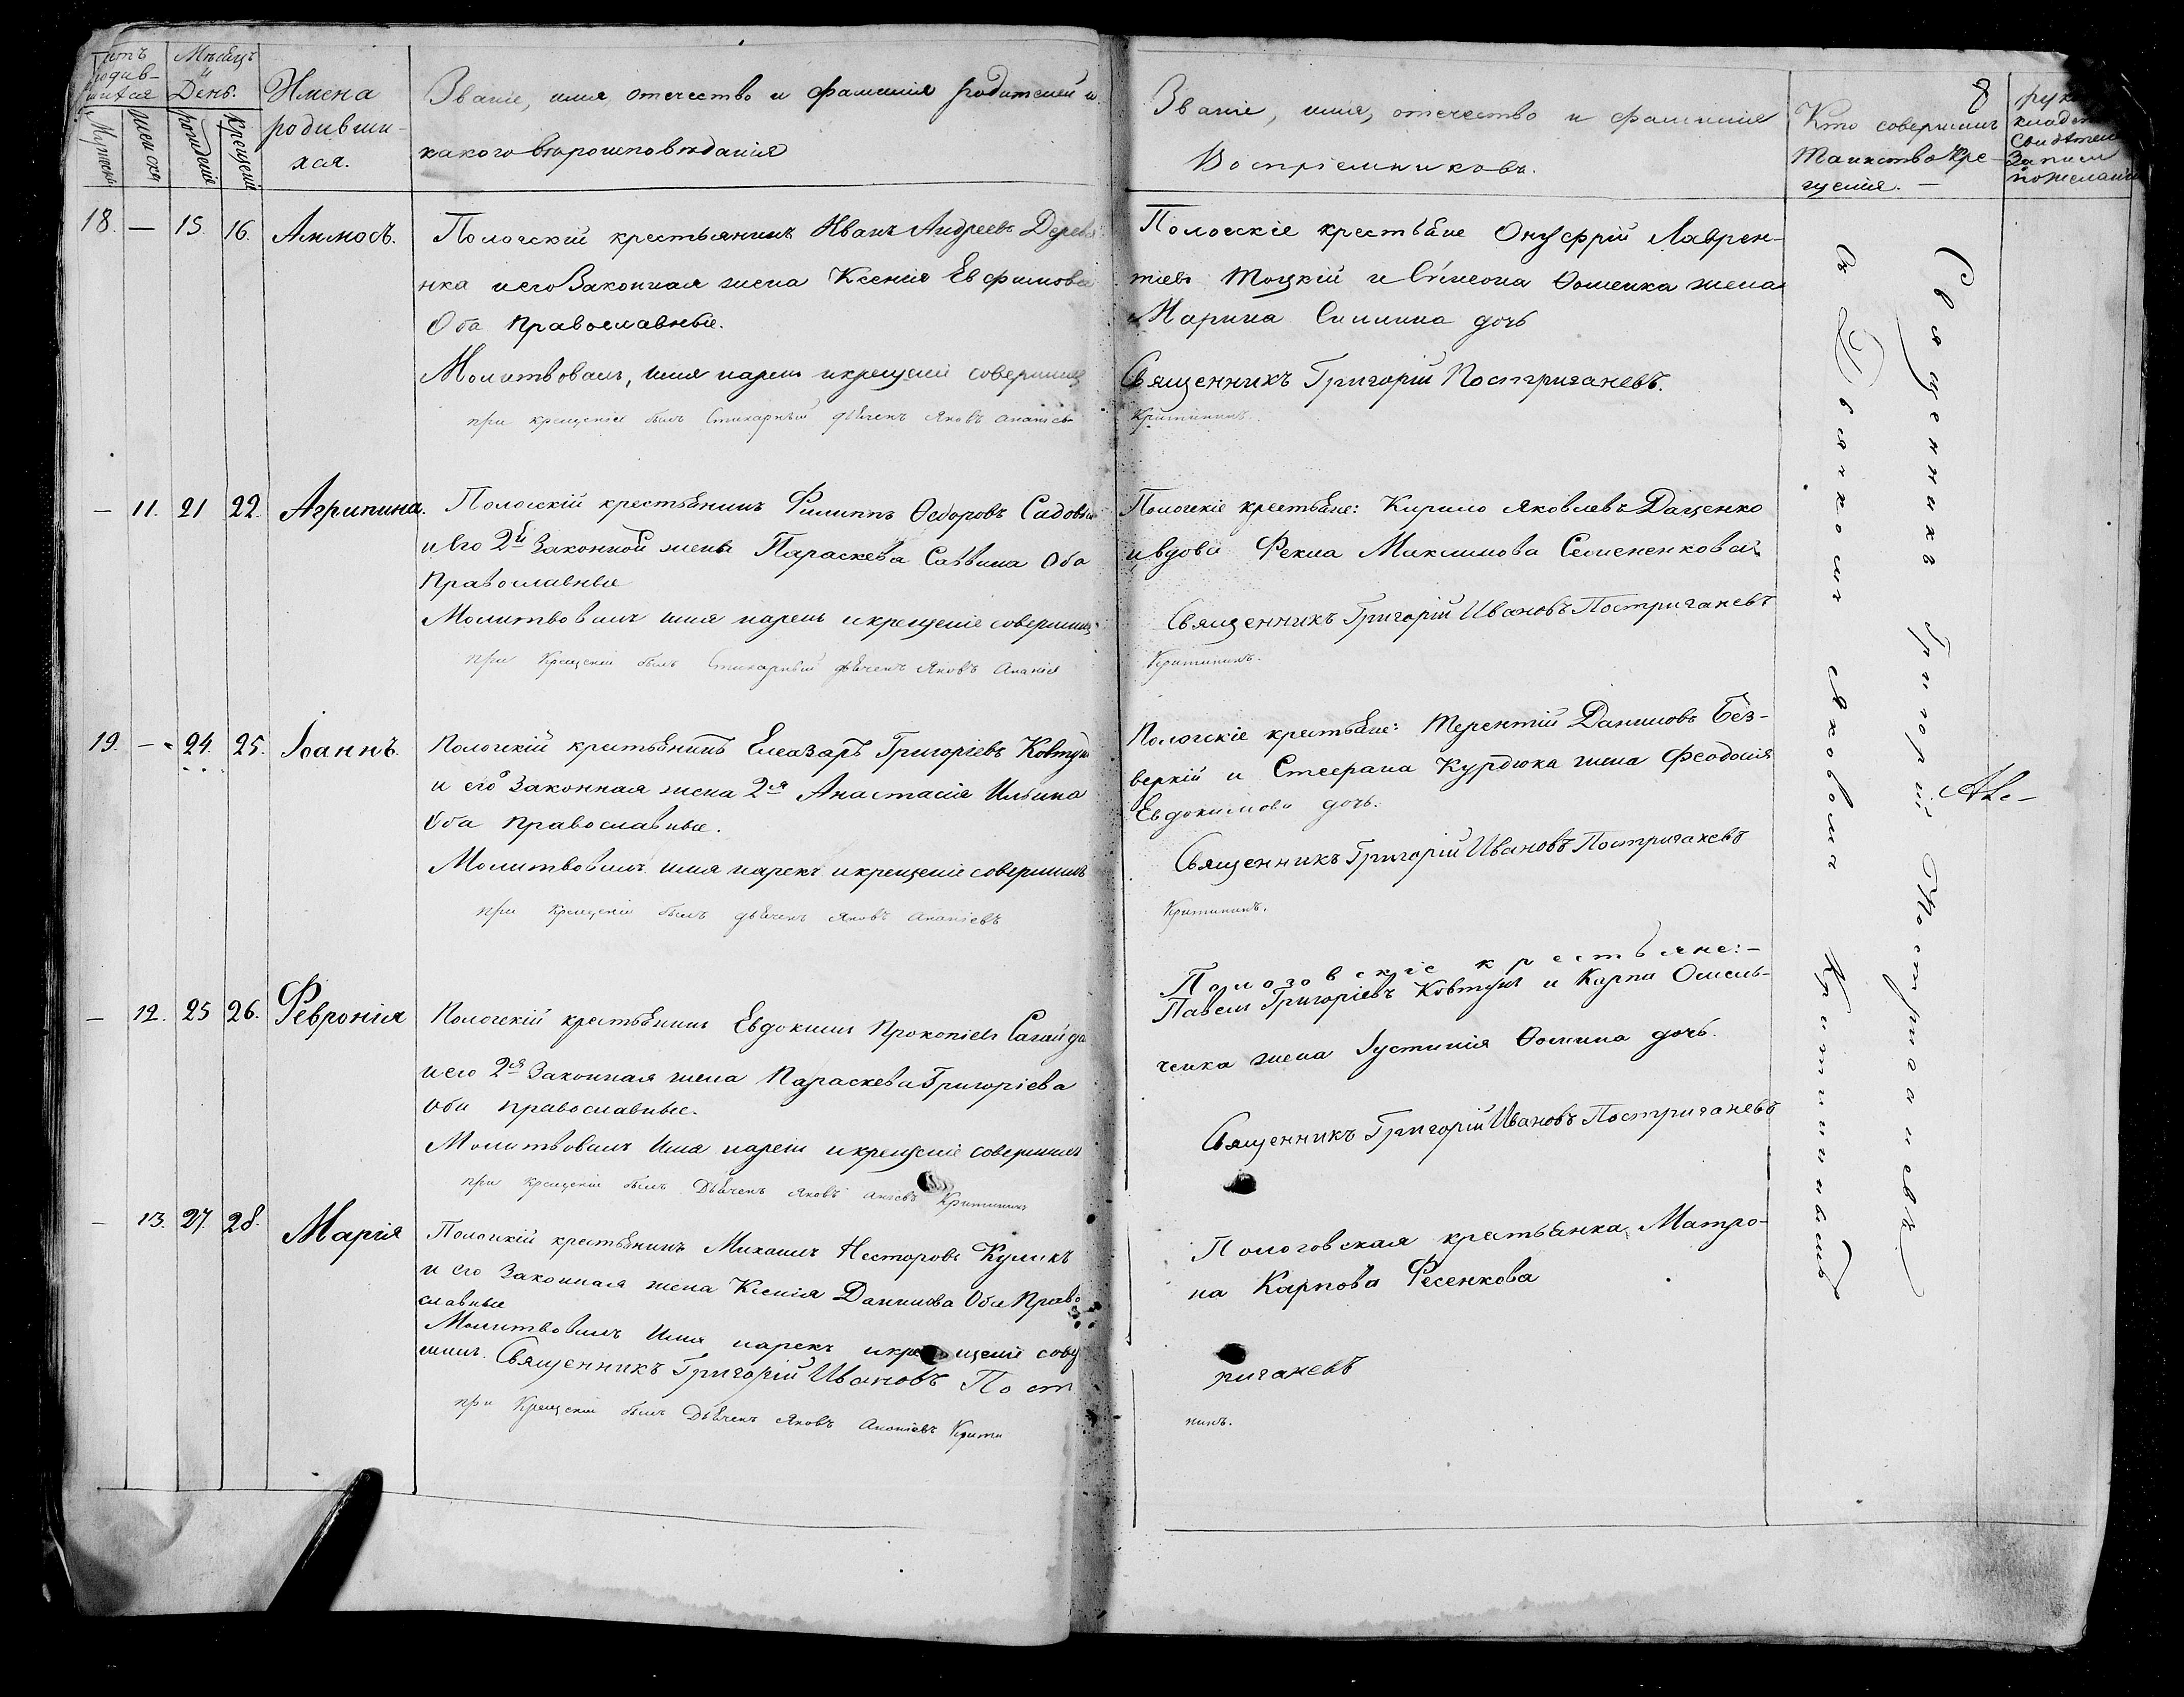 Мѣсяцъ
и
День.
Имена
родивши-
хся.
Званіе, имя, отечество и фамилія родителей и
какого вѣроисповѣданія
Званіе, имя, отечество и фамилія
Воспріемниковъ.
8
Кто совершилъ
Таинство Кре-
щенія. —
мужска
женска
рожденіе
крещеніе
18. — 15. 16. Аммосъ.
Пологскій крестьянинъ Иванъ Андреевъ Дерев
нка и его Законная жена Ксенія Евфимова
Оба православные.
Молитвовалъ, имя нарекъ и крещеніе совершилъ
при крещеніи былъ Стихарный дьяченъ Яковъ Ананіевъ
Пологскіе крестьяне Онуфрій Лаврен-
тіевъ Тоцкій и Сімеона Ѳоменка жена
Марина дочь
Священникъ Григорій Постригачевъ.
Критининъ.
— 11. 21 22. Агрипина.
Пологскій крестьянинъ Филиппъ Ѳедоровъ Садов
и его 2й Законной жены Параскева Саввина Оба
Православные
Молитвовалъ имя нарекъ и крещеніе совершилъ
при Крещеніи былъ Стихарный дьяченъ Яковъ Ананіев
Пологскіе крестьяне: Кирило Яковлевъ Даценко
и вдова Фекла Максимова Семененкова
Священникъ Григорій Ивановъ Постригачевъ
Критининъ.
19. — 24. 25. Іоаннъ.
Пологскій крестьянинъ Елеазаръ Григоріевъ Ковтун
и его Законная жена 2я Анастасія Ильина
Оба православные.
Молитвовалъ имя нарекъ и крещеніе совершилъ
при крещеніи былъ дьяченъ Яковъ Ананіевъ
Пологскіе крестьяне: Терентій Даниловъ Без-
веркій и Стефана Курдюка жена Феодосія
Евдокимова дочь.
Священникъ Григорій Ивановъ Постригачевъ
Критининъ.
— 12. 25 26. Февронія
Пологскій крестьянинъ Евдокимъ Прокопіевъ Сагайда
и его 2я Законная жена Параскева Григоріева
Оба православные.
Молитвовалъ Имя нарекъ и крещеніе совершилъ
при крещеніи былъ Дьяченъ Яковъ Критининъ
крестьяне: —
Павелъ Григоріевъ Ковтунъ и Карпа Омель-
ченка жена Іустинія Ѳомина дочь.
Священникъ Григорій Ивановъ Постригачевъ
— 13. 27. 28. Марія
Пологскій крестьянинъ Михаилъ Несторовъ Куликъ
и его Законная жена Ксенія Данилова Оба Право
славные
Молитвовалъ Имя нарекъ и крещеніе сове
шилъ. Священникъ Григорій Ивановъ Пост
при Крещеніи былъ Дьяченъ Яковъ Ананіевъ Крити
Пологовская крестьянка, Матро-
на Карпова Фесенкова
ригачевъ
нинъ.
Священникъ Григорій Постригачевъ
съ Дьячкомъ Яковомъ Критининымъ